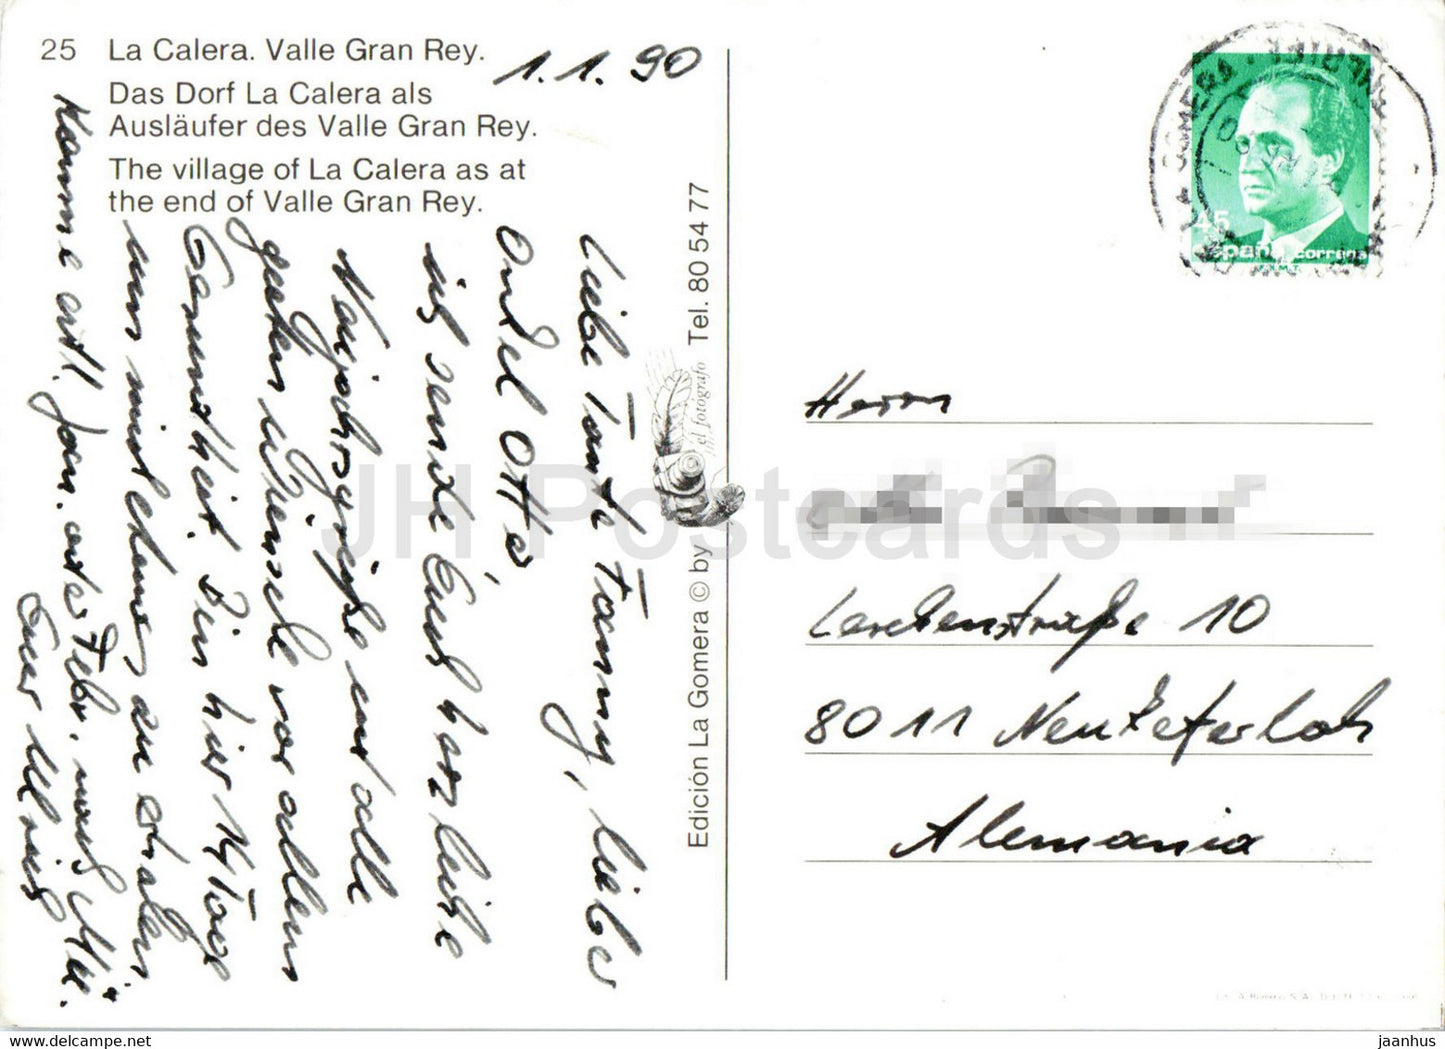 25 La Calera. Valle Gran Rey.
Das Dorf La Calera als
Ausläufer des Valle Gran Rey.
The village of La Calera as at
the end of Valle Gran Rey.
1.1.90
Liebe Tante Fanny, lieber
Onkel Otto,
ich sende Euch herzliche
Neujahrsgrüße und alle
guten Wünsche vor allem
Gesundheit. Bin hier 14 Tage
um mich zu erholen
Komme evtl. Jan. oder Febr. nach Mü.
Euer
Edición La Gomera © by el fotógrafo Tel. 80 54 77
LA GOMERA
45
españa correos
F.N.M.T.
Herrn
Lerchenstraße 10
8011 Neukeferloh
Alemania
JH Postcards
hippostcard.com
jaanhus